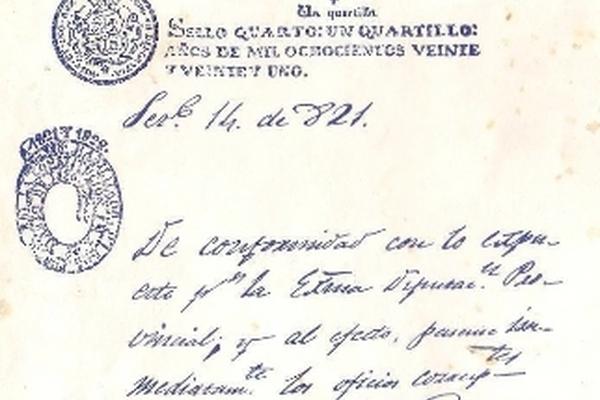 Un quartillo.
SELLO QUARTO: UN QUARTILLO:
AÑOS DE MIL OCHOCIENTOS VEINTE
Y VEINTE Y UNO.
14. de 821.
De conformidad con lo espu-
esto p.r la Exma Diputac.n Pro-
vincial; y al efecto, pasense in-
mediatam.te los oficios corresp-
tes